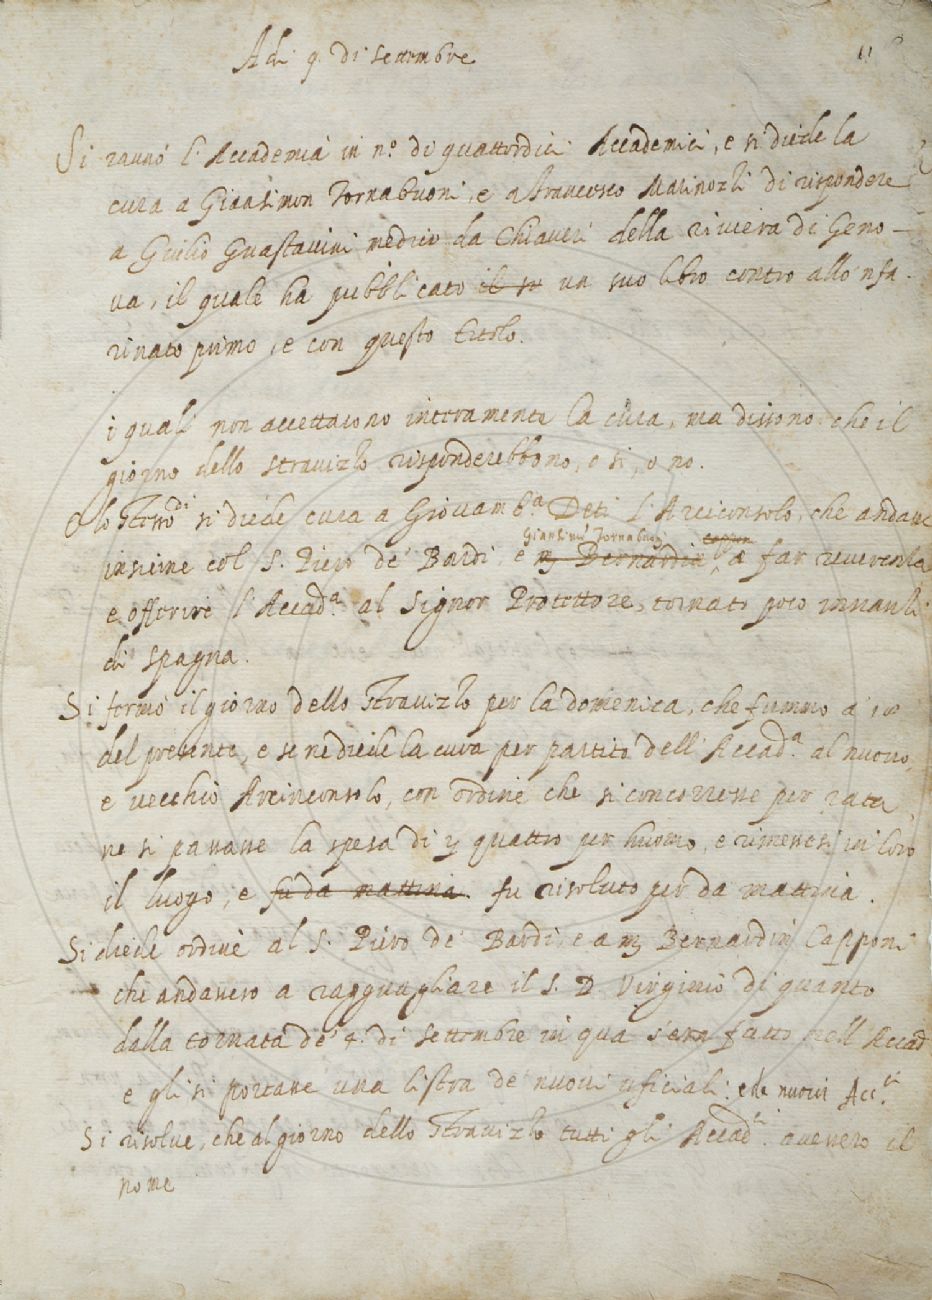 Adi 9. di settembre
11
Si raunò l'Accademia in n.º di quattordici Accademici, e si diede la
cura a Giansimon Tornabuoni, e a Francesco Marinozzi di rispondere
a Giulio Guastavini medico da Chiaveri della riviera di Geno-
va, il quale ha pubblicato il su un suo libro contro allo 'nfa-
rinato primo, e con questo titolo.
i quali non accettarono interamente la cura, ma dissono che il
giorno dello stravizzo risponderebbono, o si, o no.
E lo stesso dì si diede cura a Giovamb.ª Deti l'Arciconsolo, che andasse
Giansimõ Tornabuoni
insieme col S. Piero de' Bardi, e m Bernardin Cappon a far reverenza
e offerire l'Accad.ª al Signor Protettore, tornato poco innanzi
di spagna.
Si fermò il giorno dello stravizzo per la domenica, che fummo a
del presente, e se ne diede la cura per partito dell'Accad.ª al nuovo,
e vecchio Arcinconsolo, con ordine che si concorresse per rata
ne si passasse la spesa di quattro per huomo, e rimenesi in loro
il luogo, e fu da mattina. fu risoluto per da mattina.
Si diede ordine al S. Piero de' Bardi, e a m Bernardin Capponi
che andassero a ragguagliare il S. D Virginio di quanto
dalla tornata de' 4. di settembre in qua s'era fatto nell'Accad
e gli si portasse una listra de' nuovi uficiali: e de nuovi Acc.ci
Si risolve, che al giorno dello stravizzo tutti gli Accad.ci avessero il
nome